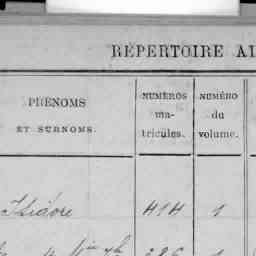 RÉPERTOIRE AL
PRÉNOMS
ET SURNOMS.
NUMÉROS
ma-
tricules.
NUMÉRO
du
volume.
Isidore 414 1